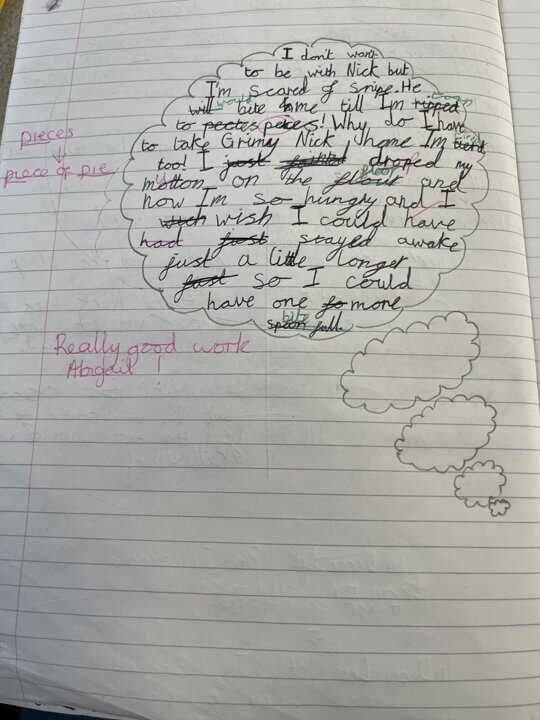 I don't want
to be with Nick but
I'm scared of snipe. He
will would bite me till I'm ripped torn
to pectes peices! Why do I have
to take Grimy Nick home I'm tierd tired
too! I just fainted dropped my
mutton on the flour floor and
now I'm so hungry and I
wich wish I could have
had just stayed awake
just a little longer
just so I could
have one fo more
spoon full. bite
pieces
piece of pie
Really good work
Abigail !